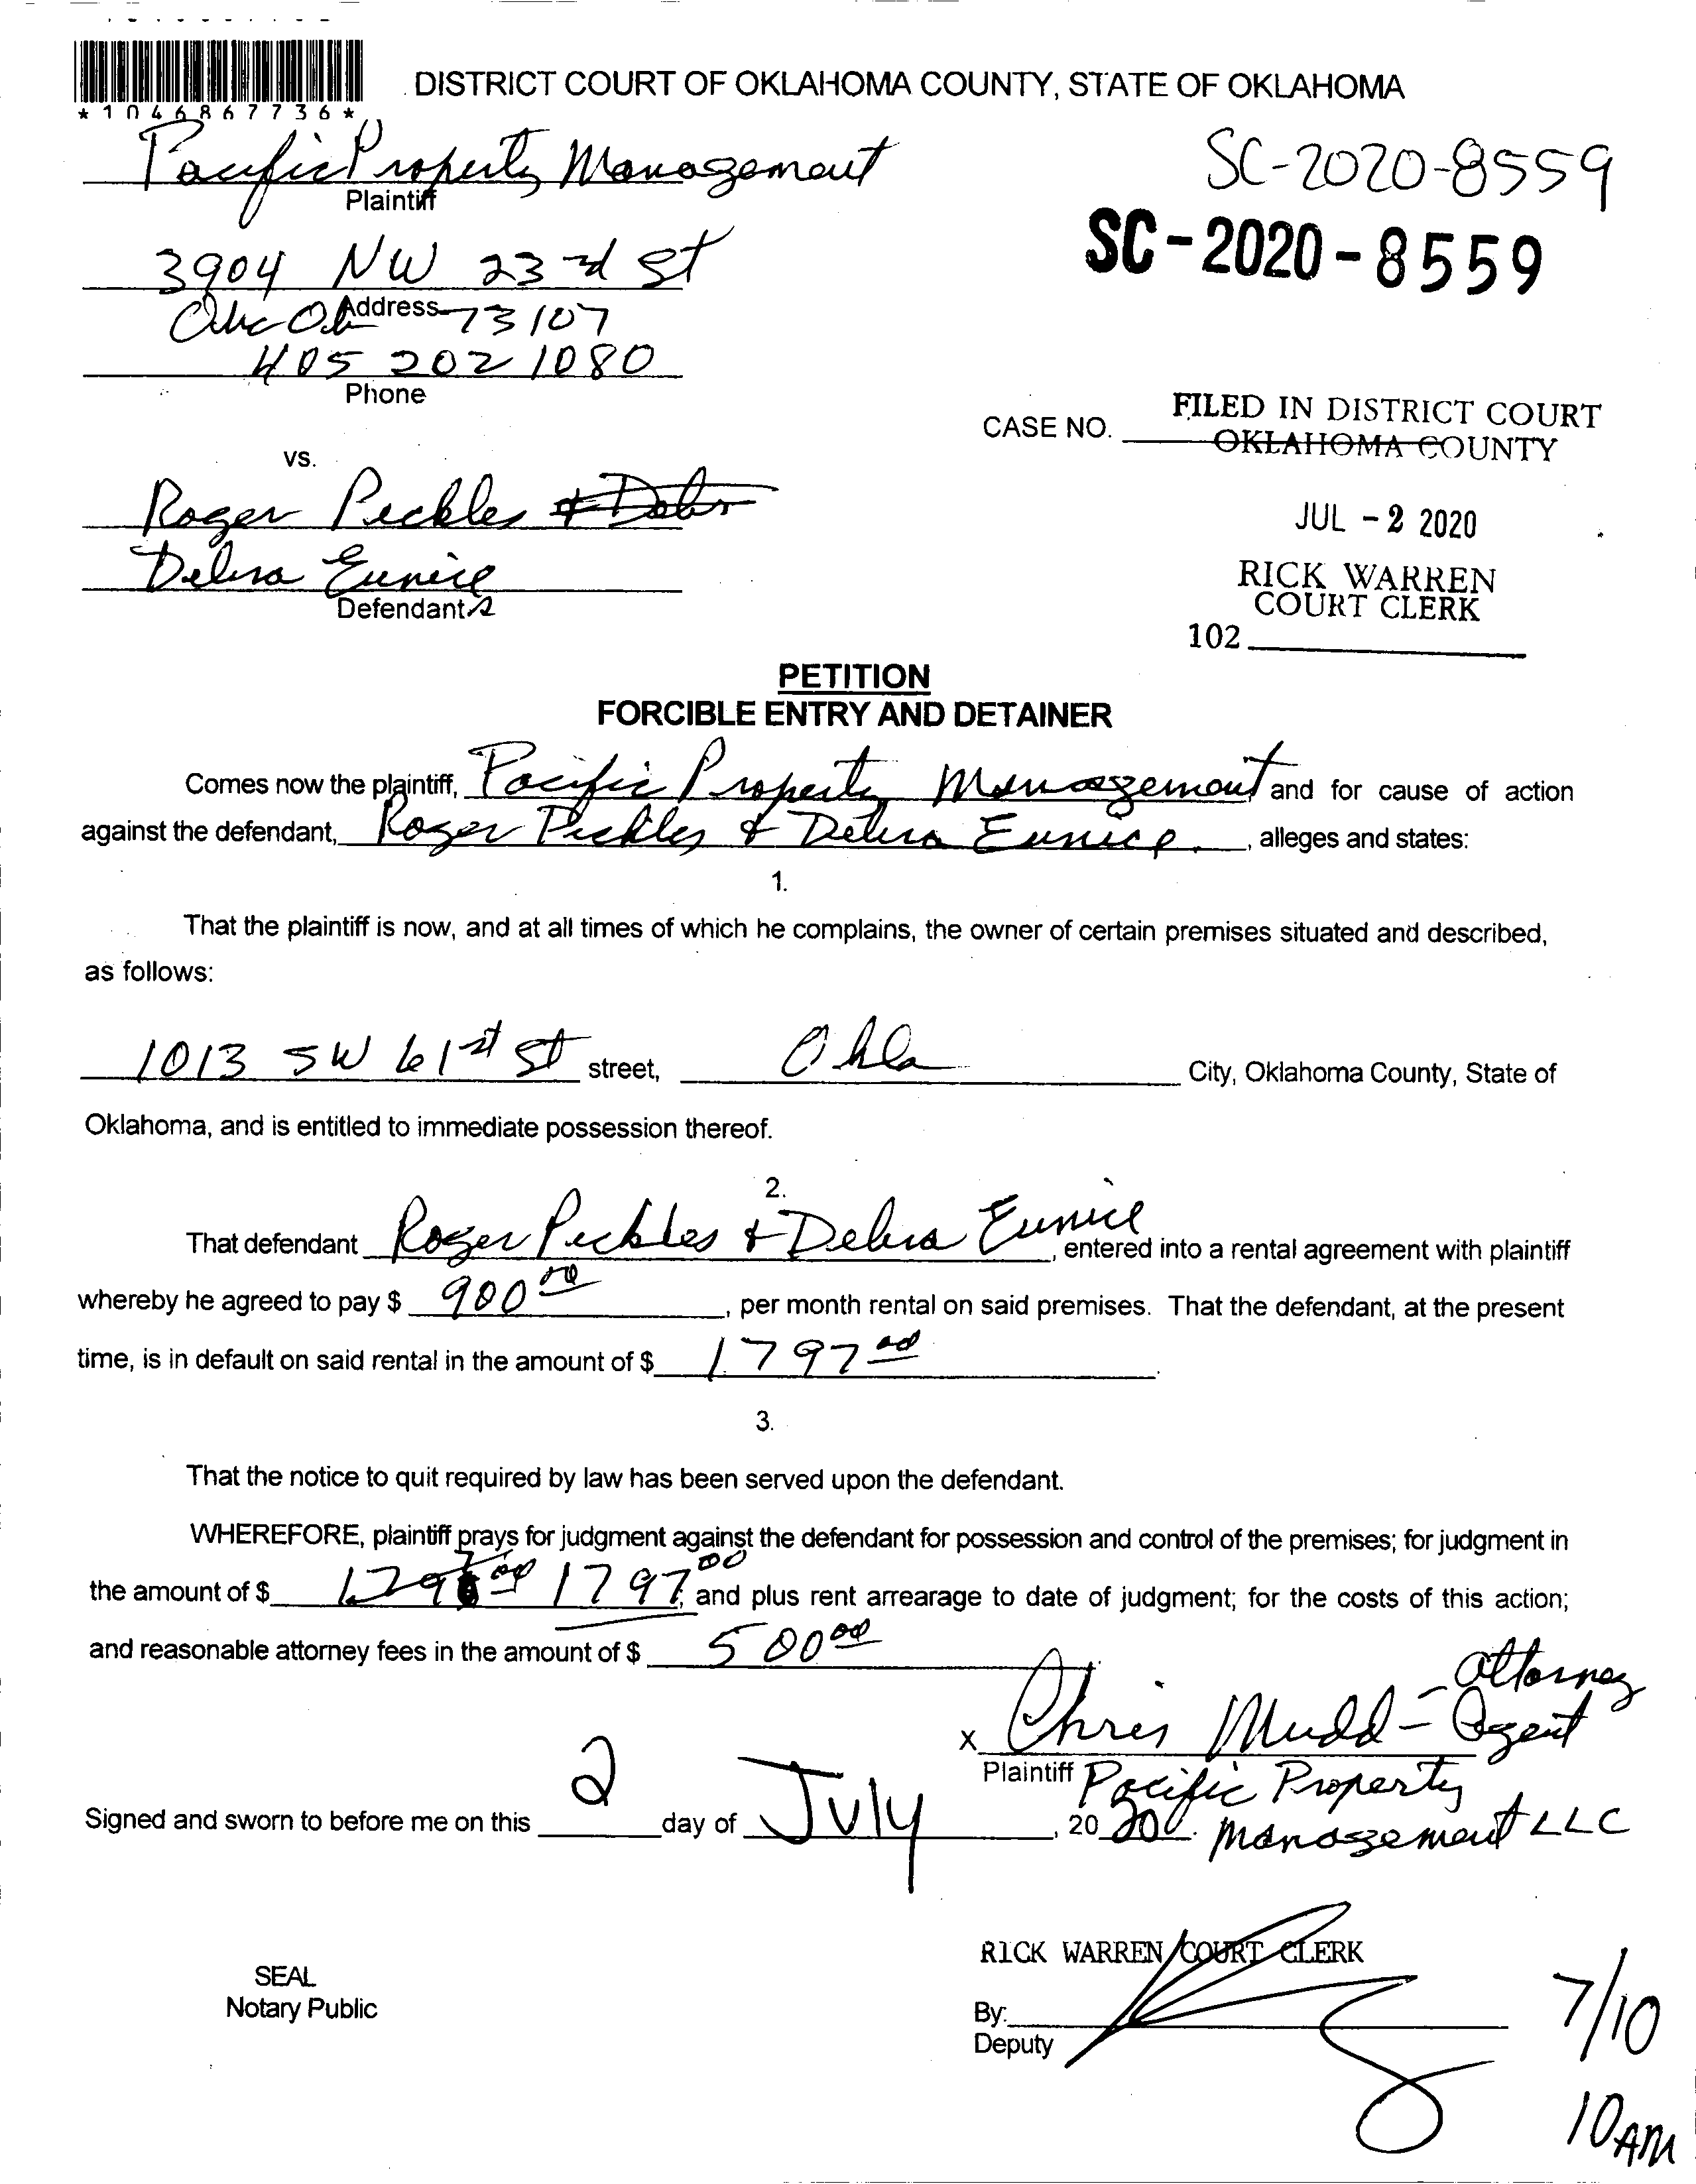 *1046867736*
DISTRICT COURT OF OKLAHOMA COUNTY, STATE OF OKLAHOMA
Pacific Property Management
Plaintiff
SC-2020-8559
SC-2020-8559
3904 NW 23rd St
Address
Okc Ok 73107
405 202 1080
Phone
CASE NO.
FILED IN DISTRICT COURT
OKLAHOMA COUNTY
vs.
Roger Peckles & Debra
JUL -2 2020
Debra Eunice
Defendants
RICK WARREN
COURT CLERK
102
PETITION
FORCIBLE ENTRY AND DETAINER
Comes now the plaintiff, Pacific Property Management and for cause of action
against the defendant, Roger Peckles & Debra Eunice, alleges and states:
1.
That the plaintiff is now, and at all times of which he complains, the owner of certain premises situated and described,
as follows:
1013 SW 61st St street, Okla City, Oklahoma County, State of
Oklahoma, and is entitled to immediate possession thereof.
2.
That defendant Roger Peckles & Debra Eunice, entered into a rental agreement with plaintiff
whereby he agreed to pay $ 900 00, per month rental on said premises. That the defendant, at the present
time, is in default on said rental in the amount of $ 1797 00.
3.
That the notice to quit required by law has been served upon the defendant.
WHEREFORE, plaintiff prays for judgment against the defendant for possession and control of the premises; for judgment in
the amount of $ 1797 00, and plus rent arrearage to date of judgment; for the costs of this action;
and reasonable attorney fees in the amount of $ 500 00
x Chris Mudd - attorney
- Agent
Plaintiff Pacific Property
Management LLC
Signed and sworn to before me on this 2 day of July, 2020.
SEAL
Notary Public
RICK WARREN COURT CLERK
By:
Deputy
7/10
10AM